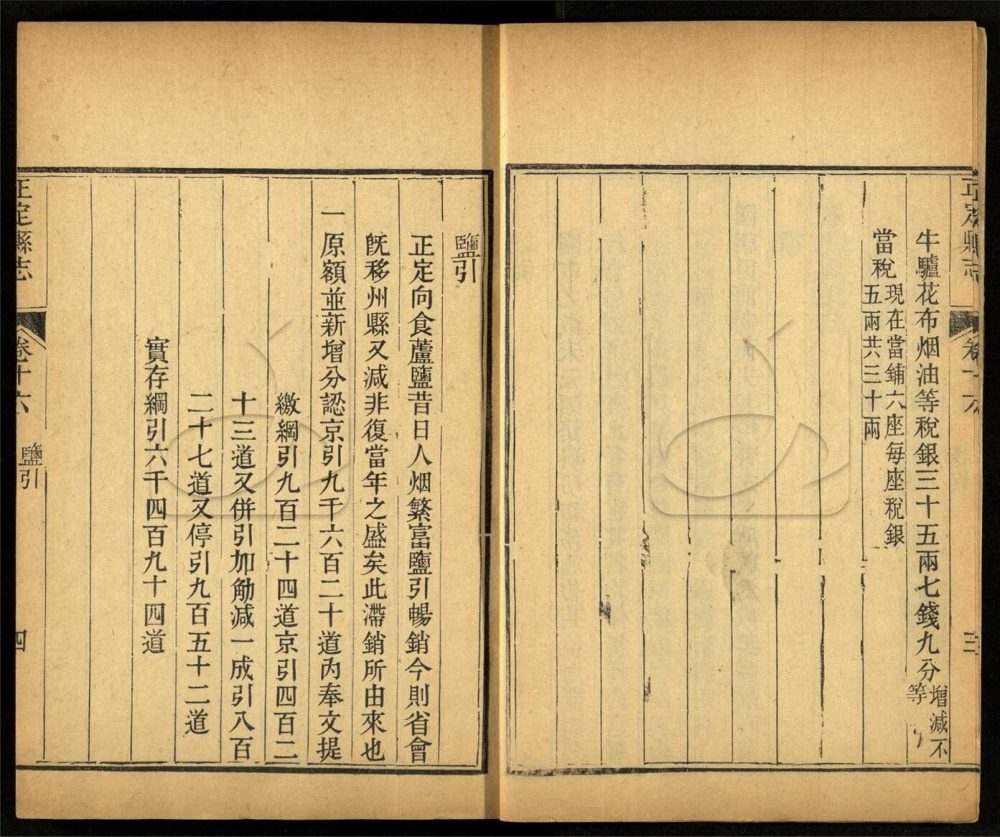 正定縣志
卷十六
三
牛驢花布烟油等稅銀三十五兩七錢九分增減不
等
當稅現在當鋪六座每座稅銀
五兩共三十兩
鹽引
正定向食蘆鹽昔日人烟繁富鹽引暢銷今則省會
旣移州縣又減非復當年之盛矣此滯銷所由來也
一原額並新增分認京引九千六百二十道內奉文提
繳綱引九百二十四道京引四百二
十三道又併引加觔減一成引八百
二十七道又停引九百五十二道
實存綱引六千四百九十四道
正定縣志
卷十六
鹽引
四